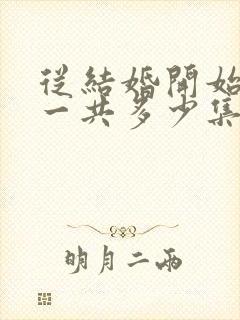 從結婚開始
一共多少集
明月二兩